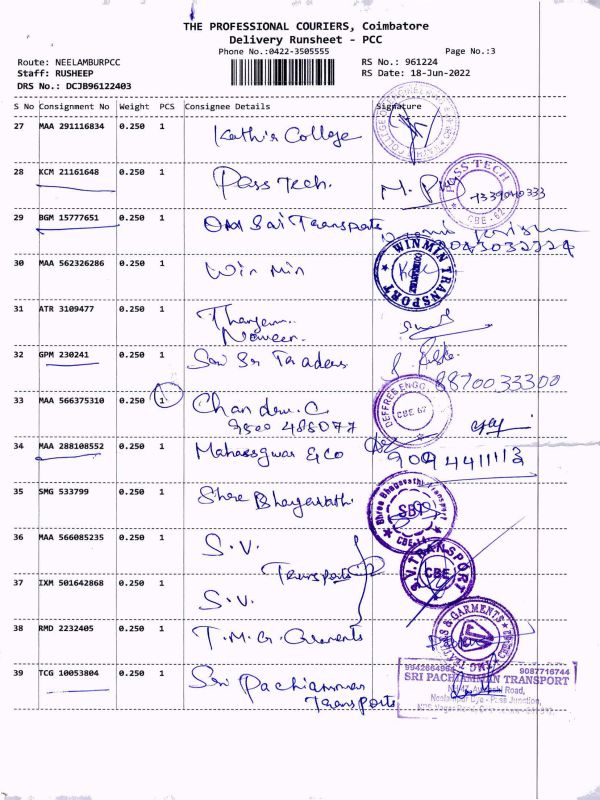 THE PROFESSIONAL COURIERS, Coimbatore
Delivery Runsheet - PCC
Phone No.:0422-3505555
Page No.:3
Route: NEELAMBURPCC
RS No.: 961224
Staff: RUSHEEP
RS Date: 18-Jun-2022
DRS No.: DCJB96122403
S No Consignment No Weight PCS Consignee Details Signature
27 MAA 291116834 0.250 1 Kathir College
28 KCM 21161648 0.250 1 Pass Tech. PASS TECH CBE-62
29 BGM 15777651 0.250 1 Om Sai Transports
30 MAA 562326286 0.250 1 Win Min WINMIN TRANSPORT COIMBATORE
31 ATR 3109477 0.250 1
Naveen
32 GPM 230241 0.250 1 Sri Sri Traders
8870033300
33 MAA 566375310 0.250 1 Chandru.C CBE 62
9500 488077
34 MAA 288108552 0.250 1 & Co 9094411113
35 SMG 533799 0.250 1 Shree Bhagavathi Shree Bhagavathi Transport SBT
36 MAA 566085235 0.250 1 S.V.
Transports S.V.TRANSPORT CBE
37 IXM 501642868 0.250 1 S.V.
38 RMD 2232405 0.250 1 T.M.G. Garments & GARMENTS
39 TCG 10053804 0.250 1 Sri Pachiamman
Transports
9087716744
SRI PACHIAMMAN TRANSPORT
Road,